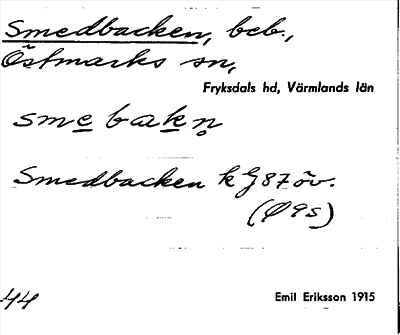 Smedbacken, beb.,
Östmarks sn,
Fryksdals hd, Värmlands län
smebakn̥
Smedbacken k J87öv.
(Ø9s)
44
Emil Eriksson 1915